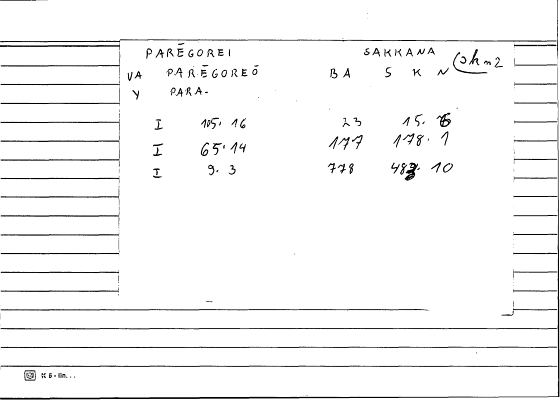 PARĒGOREI SAKKANA
VA PARĒGOREŌ BA S K N (skn2
Y PARA-
I 105. 16 23 15.
I 65. 14 177 178. 1
I 9. 3 778 10